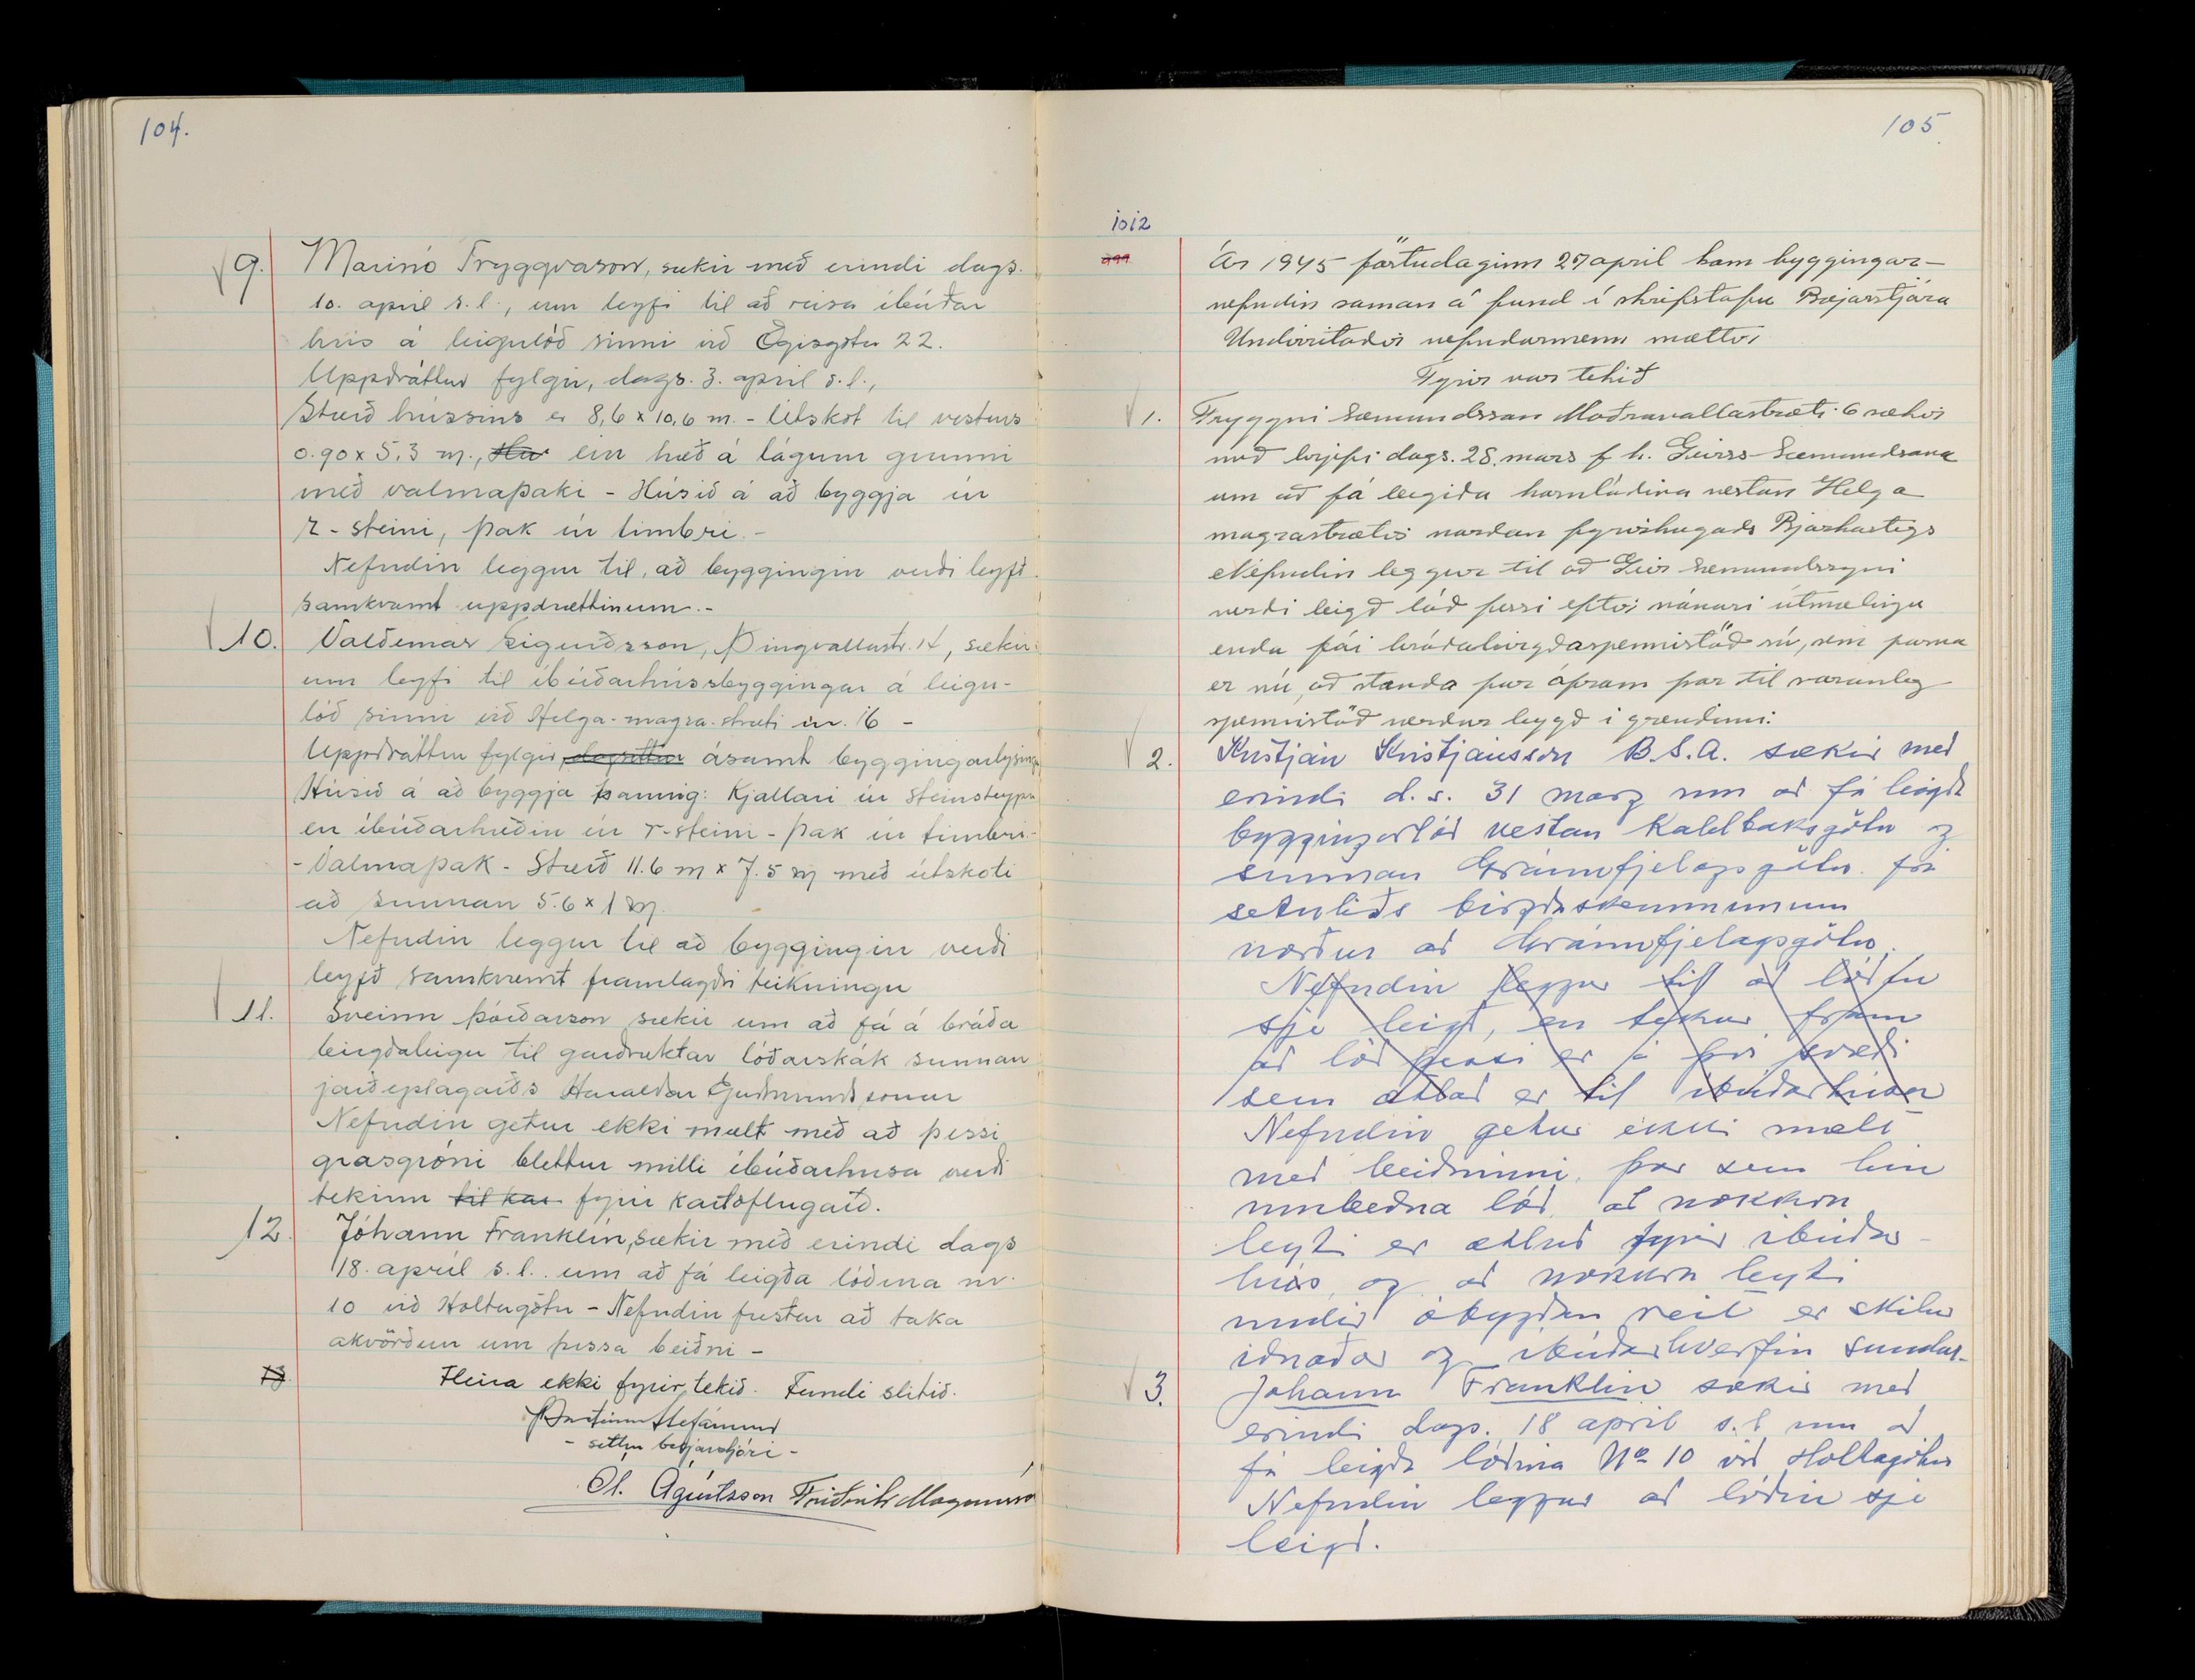 104.
9. Marinó Tryggvason, sækir með erindi dags.
10. apríl s.l., um leyfi til að reisa íbúðar
hús á leigulóð sinni við Ægisgötu 22.
Uppdráttur fylgir, dags. 3. apríl s.l.,
Stærð hússins er 8,6 x 10,6 m. - Útskot til vesturs
0.90 x 5.3 m., ein hæð á lágum grunni
með valmaþaki - Húsið á að byggja úr
r-steini, þak úr timbri. -
Nefndin leggur til, að byggingin verði leyfð
samkvæmt uppdrættinum. -
10. Valdemar Sigurðsson, Þingvallastr. 14, sækir
um leyfi til íbúðarhússbyggingar á leigu-
lóð sinni við Helga-magra-stræti nr. 16 -
Uppdráttur fylgir, ásamt byggingarlýsingu
Húsið á að byggja þannig: Kjallari úr steinsteypu
en íbúðarhæðin úr r-steini - þak úr timbri -
- Valmaþak - Stærð 11.6 m x 7.5 m með útskoti
að sunnan 5.6 x 1 m.
Nefndin leggur til að byggingin verði
leyfð samkvæmt framlagðri teikningu
11. Sveinn Þórðarson sækir um að fá á bráða
birgðaleigu til garðræktar lóðarskák sunnan
jarðeplagarðs Haraldar Guðmundssonar
Nefndin getur ekki mælt með að þessi
grasgróni blettur milli íbúðarhúsa verði
tekinn til kar fyrir kartöflugarð.
12. Jóhann Franklín, sækir með erindi dags
18. apríl s.l. um að fá leigða lóðina nr.
10 við Holtagötu - Nefndin frestar að taka
akvörðun um þessa beiðni -
13 Fleira ekki fyrir tekið. Fundi slitið.
Þorsteinn Stefánsson
- settur bæjarstjóri -
Ól. Ágústsson Friðrik Magnússon
105
1012
999
Ár 1945 föstudaginn 27 april kom byggingar-
nefndin saman á fund í skrifstofu Bæjarstjóra
Undirritaðir nefndarmenn mættir
Fyrir var tekið
1. Tryggvi Sæmundsson Moðruvallastræti 6 sækir
með brjefi dags. 28. mars f. h. Geirs Sæmundssonar
um að fá leigða hornlóðina vestan Helga
magrastrætis norðan fyrirhugaðs Bjarkastígs
Nefndin leggur til að Geir Sæmundssyni
verði leigð lóð þessi eftir nánari útmælingu
enda fái bráðabirgðaspennistöð sú, sem þarna
er nú, að standa þar áfram þar til varanleg
spennistöð verður byggð í grendinni.
2. Kristján Kristjánsson B.S.A. sækir með
erindi d.s. 31 marz um að fá leigða
byggingarlóð vestan Kaldbaksgötu og
sunnan Gránufjelagsgötu. frá
setuliðs birgðaskemmunum
norður að Gránufjelagsgötu.
Nefndin leggur til að lóðin
sje leigð, en tekur fram
að lóð þessi er á því svæði
sem ætlað er til íbúðarhúsa
Nefndin getur ekki mælt
með beiðninni, þar sem hin
umbeðna lóð, að nokkru
leyti er ætluð fyrir íbúðar-
hús, og að nokkru leyti
undir óbygðan reit er skilur
iðnaðar og íbúðarhverfin sundur.
3. Johann Franklin sækir með
erindi dags. 18 april s.l. um að
fá leigða lóðina No 10 við Holtagötu
Nefndin leggur að lóðin sje
leigð.